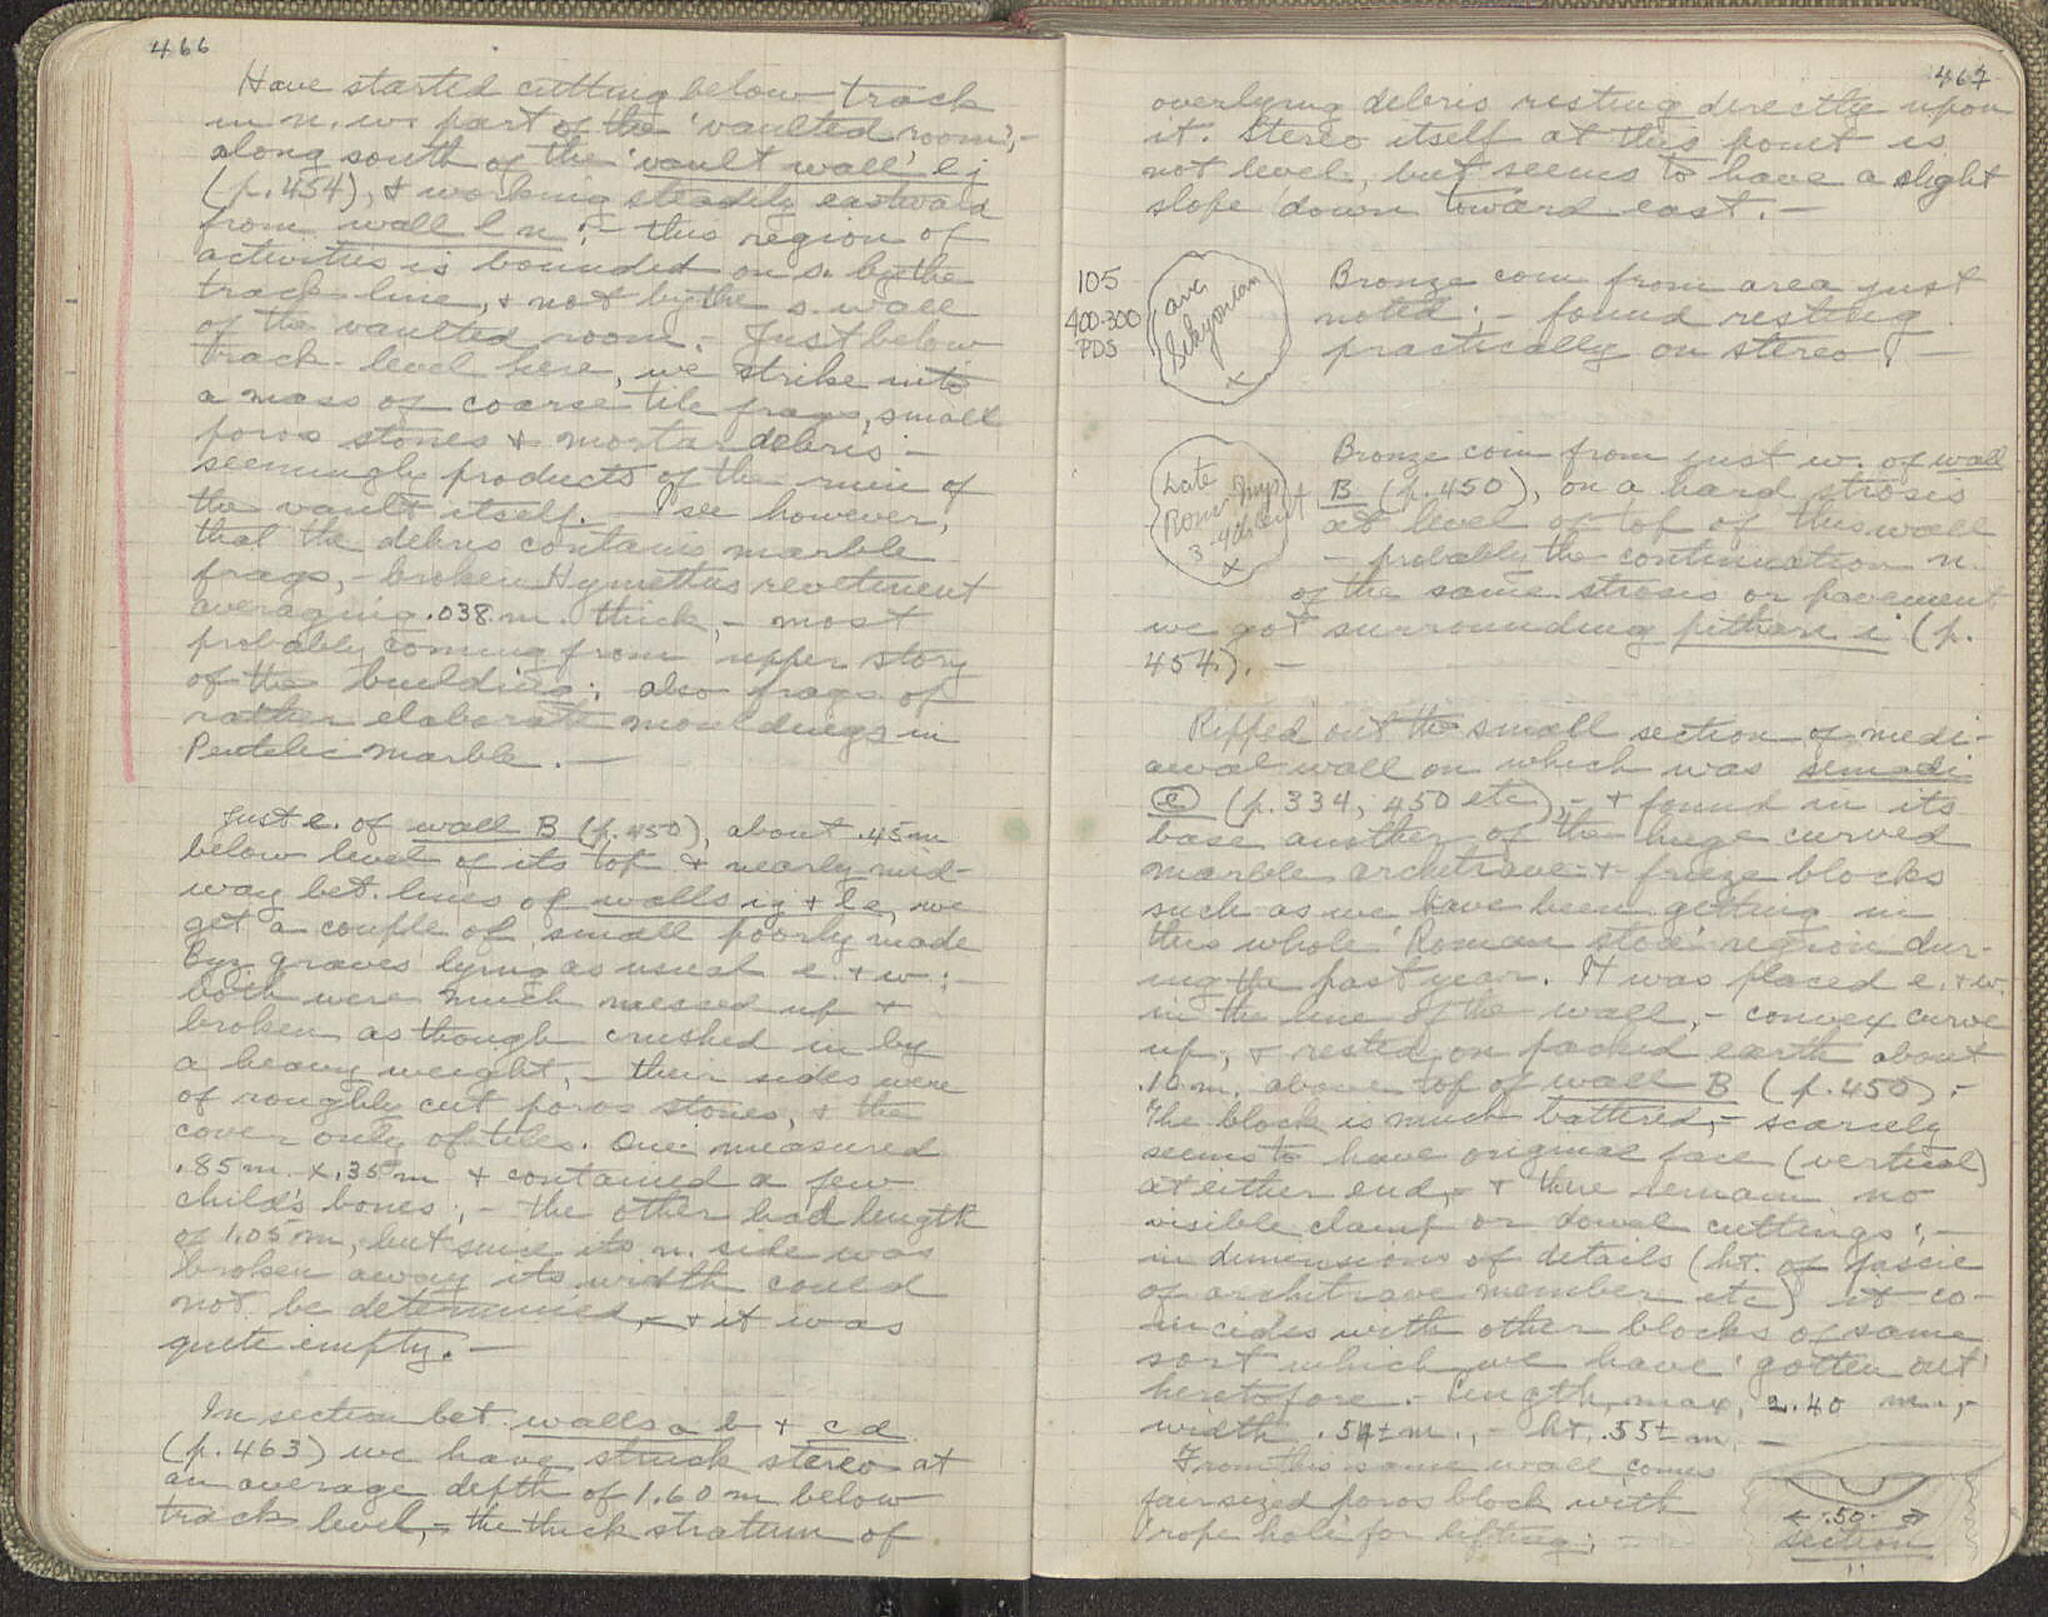 466
Have started cutting below track
in n. w. part of the 'vaulted room', -
along south of the 'vault wall' l j
(p. 454), & working steadily eastward
from wall l n ; - this region of
activities is bounded on s. by the
track line, & not by the s. wall
of the vaulted room. - Just below
track-level here, we strike into
a mass of coarse tile frags, small
poros stones & mortar debris -
seemingly products of the ruin of
the vault itself. - I see however,
that the debris contains marble
frags, - broken Hymettus revetment
averaging .038 m. thick, - most
probably coming from upper story
of the building; also frags of
rather elaborate mouldings in
Pentelic marble. -
Just e. of wall B (p. 450), about .45 m
below level of its top & nearly mid-
way bet. lines of walls ij & le, we
get a couple of small poorly made
Byz graves lying as usual e. & w: -
both were much messed up &
broken as though crushed in by
a heavy weight, - their sides were
of roughly cut poros stones, & the
cover only of tiles. One measured
.85 m. x .35 m & contained a few
child's bones; - the other had length
of 1.05 m, but since its n. side was
broken away its width could
not be determined, - & it was
quite empty. -
In section bet. walls a b & c d
(p. 463) we have struck stereo at
an average depth of 1.60 m below
track level, - the thick stratum of
467
overlying debris resting directly upon
it. Stereo itself at this point is
not level, but seems to have a slight
slope down toward east. -
105
400-300
PDS
ave
Sikyonian
x
Bronze coin from area just
noted; - found resting
practically on stereo. -
Late
Rom Imp
3-4th cent
x
Bronze coin from just w. of wall
B (p. 450), on a hard strosis
at level of top of this wall
- probably the continuation n.
of the same strosis or pavement
we got surrounding pithari i (p.
454). -
Ripped out the small section of medi-
aeval wall on which was simadi
e (p. 334, 450 etc), - & found in its
base another of the huge curved
marble architrave & frieze blocks
such as we have been getting in
this whole 'Roman stoa' region dur-
ing the past year. It was placed e. & w.
in the line of the wall, - convex curve
up, & rested on packed earth about
.10 m. above top of wall B (p. 450). -
The block is much battered, - scarcely
seems to have original face (vertical)
at either end, - & there remain no
visible clamp or dowel cuttings; -
in dimensions of details (ht. of fascie
of architrave member etc) it co-
incides with other blocks of same
sort which we have 'gotten out'
heretofore. - Length, max, 2.40 m., -
width .54± m., - ht. .55± m. -
From this same wall comes
fair sized poros block with
'rope hole' for lifting;
.50
section